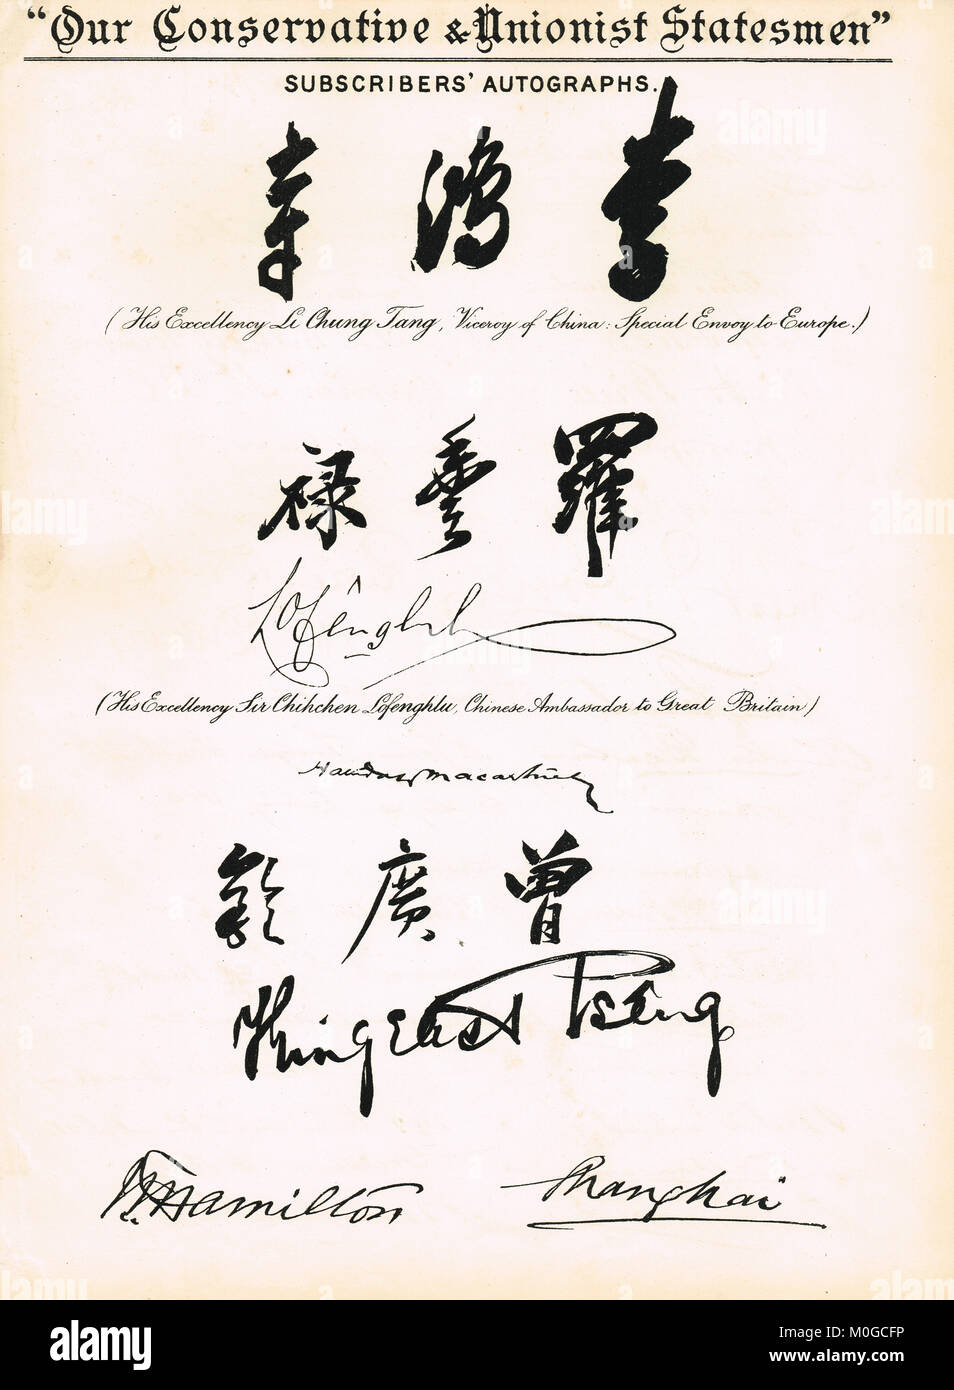 “Our Conservative & Unionist Statesmen”
SUBSCRIBERS’ AUTOGRAPHS.
李鴻章
(His Excellency Li Chung Tang, Viceroy of China: Special Envoy to Europe.)
羅豐禄
Lofêngluh
(His Excellency Sir Chihchen Lofenghlu, Chinese Ambassador to Great Britain)
Halliday Macartney
曾廣銓
Tseng
Hamilton Shanghai
alamy
Image ID: M0GCFP
www.alamy.com